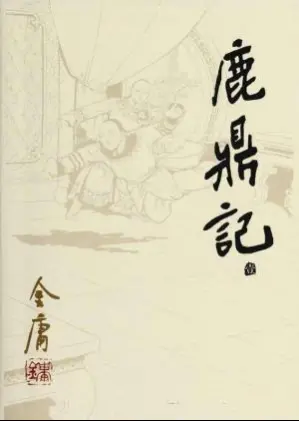 鹿鼎記
壹
金庸
金庸